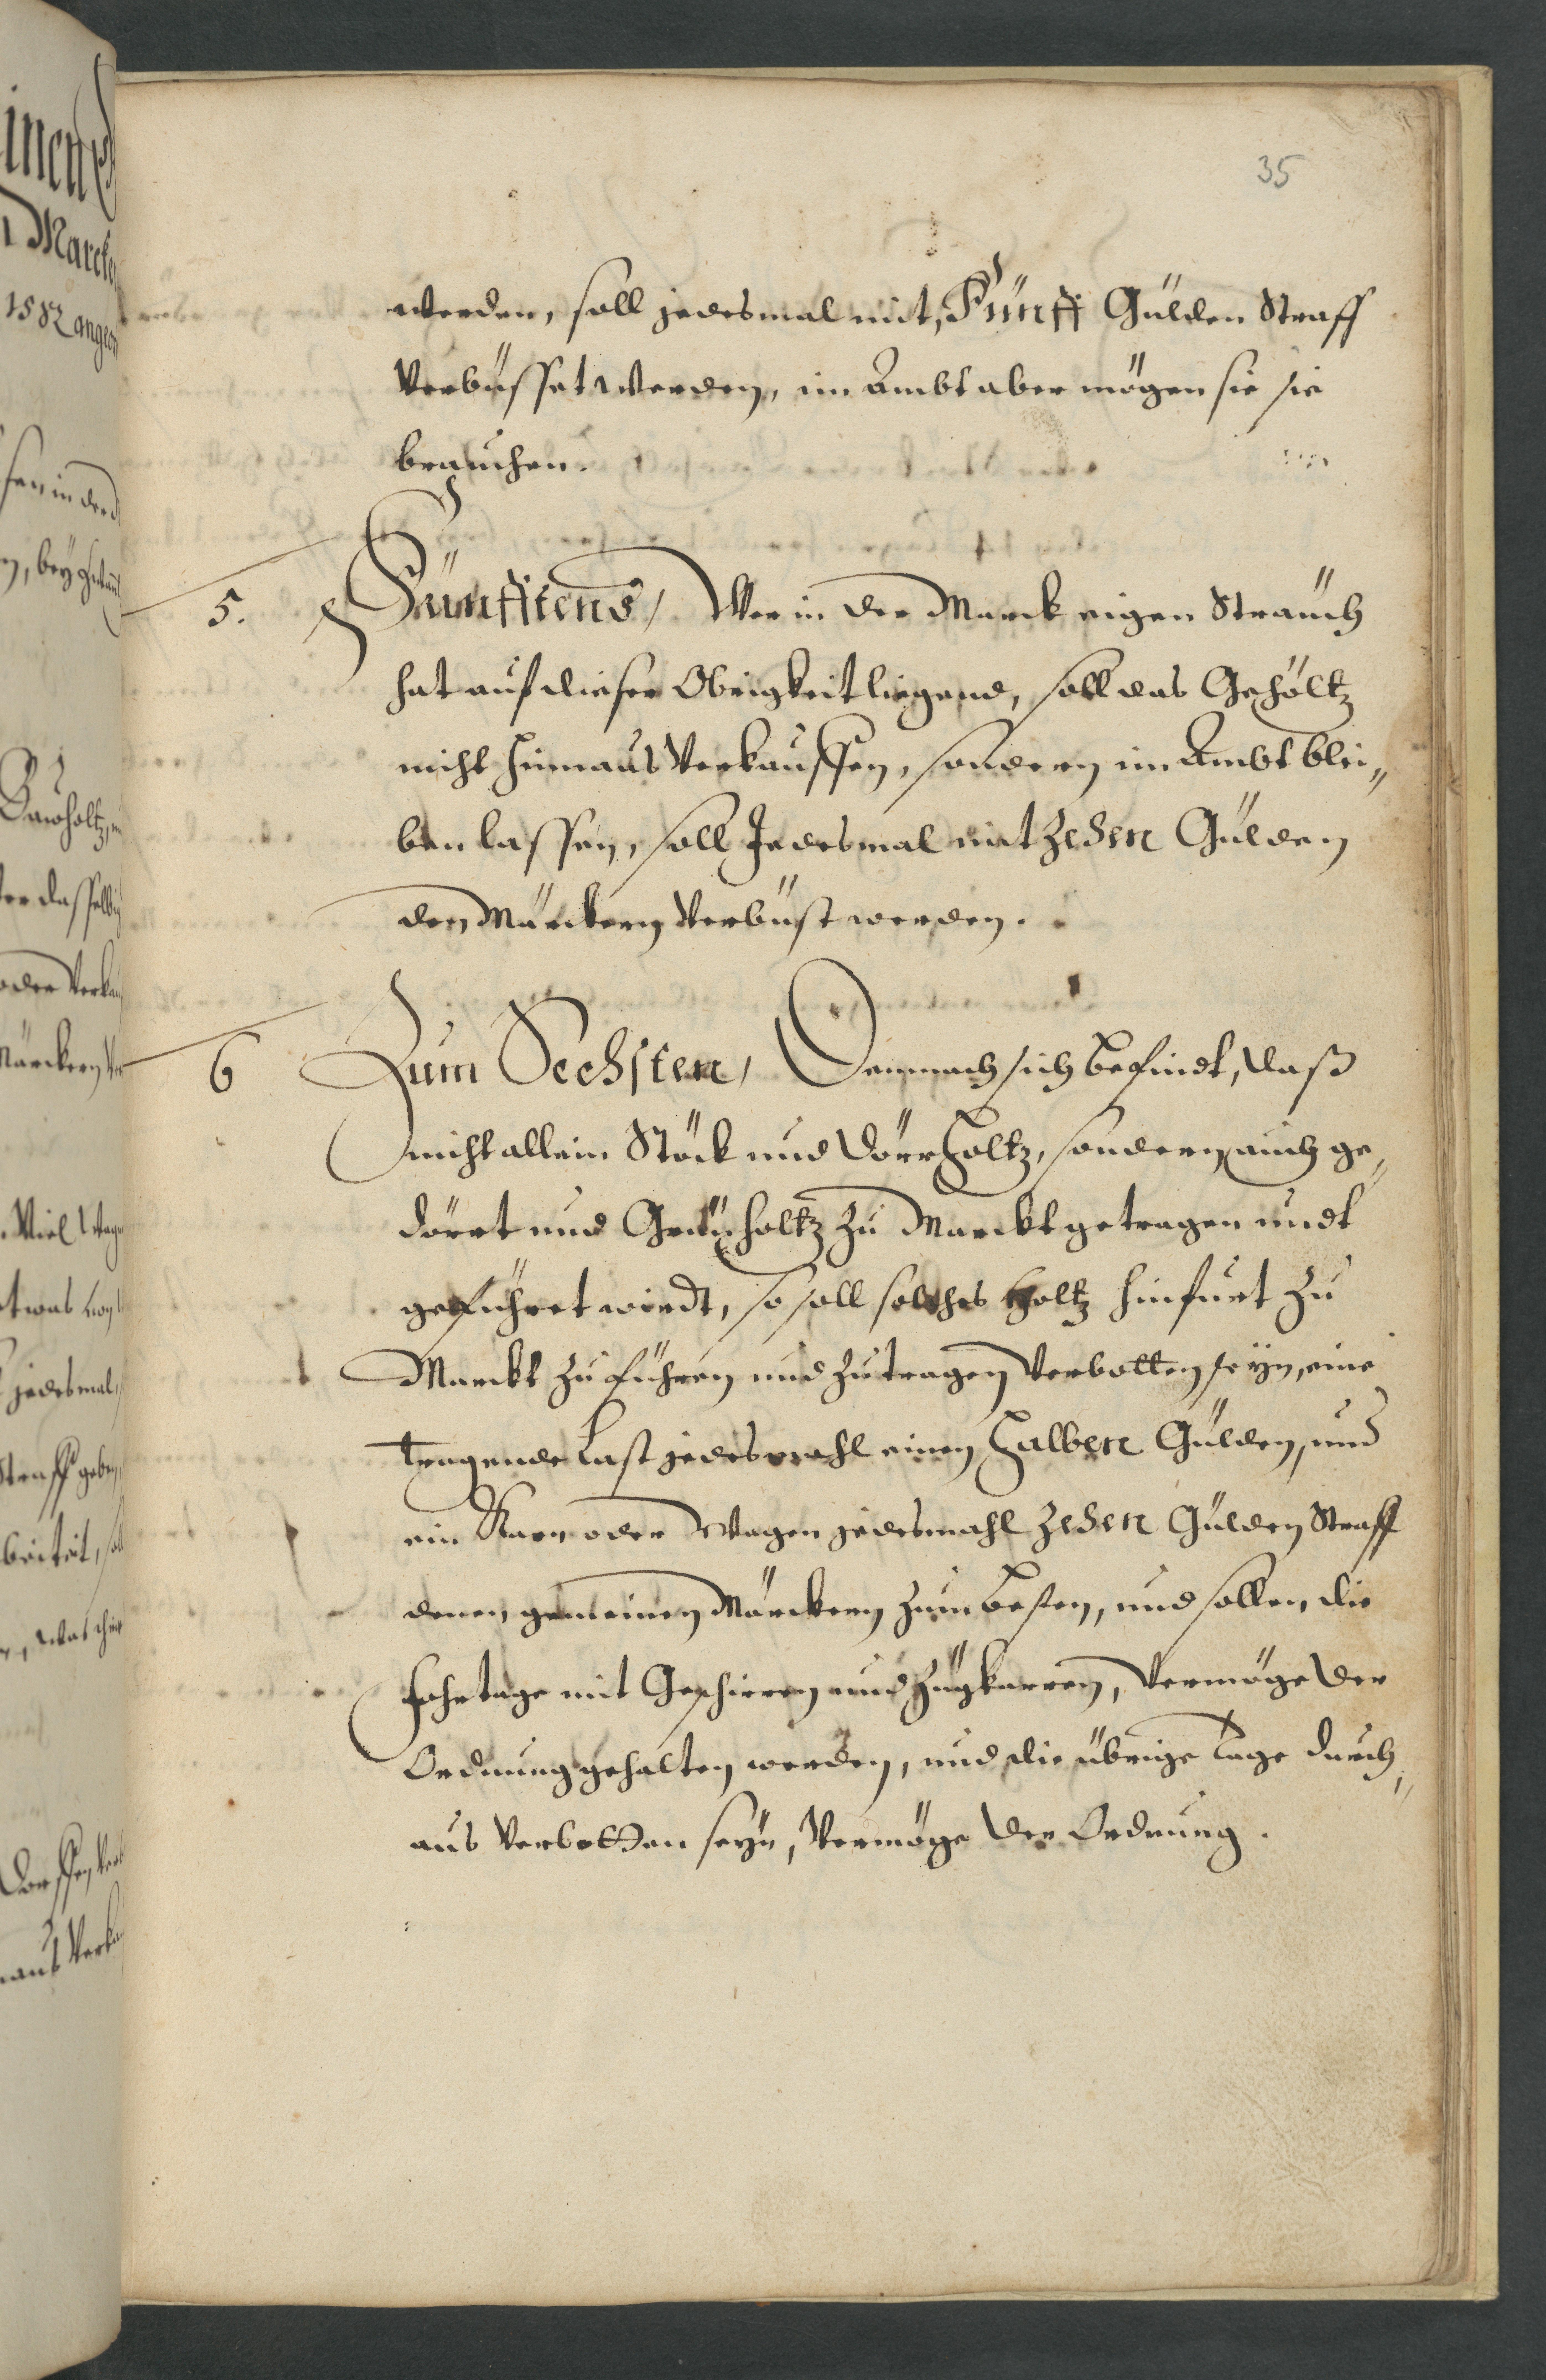 35
werden, soll jedesmal mit, Fünff Gülden Straff
Verbüsset werden, im Ambt aber mögen sie sie
brauchen.
5. Fünfftens, Wer in der Marck eigen Sträuch
hat auf dieser Obrigkeit liegend, soll das Gehöltz
nicht hinnaus Verkauffen, sondern im Ambt blei„
ben lassen, soll Jedesmal mit Zehen Gülden
den Märckern Verbüst werden.
6 Zum Sechsten, Demnach sich befindt, daß
nicht allein Stöck und Dörrholtz, sondern auch ge„
dörrt und Grünholtz zu Marckt getragen undt
geführet wirdt, so soll solches Holtz hinfurt zu
Marckt zu führen und zutragen Verbotten seyn, eine
tragende Last jedesmahl einen Halben Gülden, und
ein Karn oder Wagen jedesmahl Zehen Gülden Straff
denen gemeinen Märckern zum besten, und sollen die
Fohrtage mit Geschirren und Zugkarren, Vermöge der
Ordnung gehalten werden, und die übrige Tage durch„
aus Verbotten seyn, Vermöge der Ordnung.